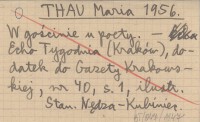 THAU Maria 1956.
W gościnie u poety. —
Echo Tygodnia (Kraków), do-
datek do Gazety Krakows-
kiej, nr 40, s. 1, ilustr.
Stan. Nędza-Kubiniec.